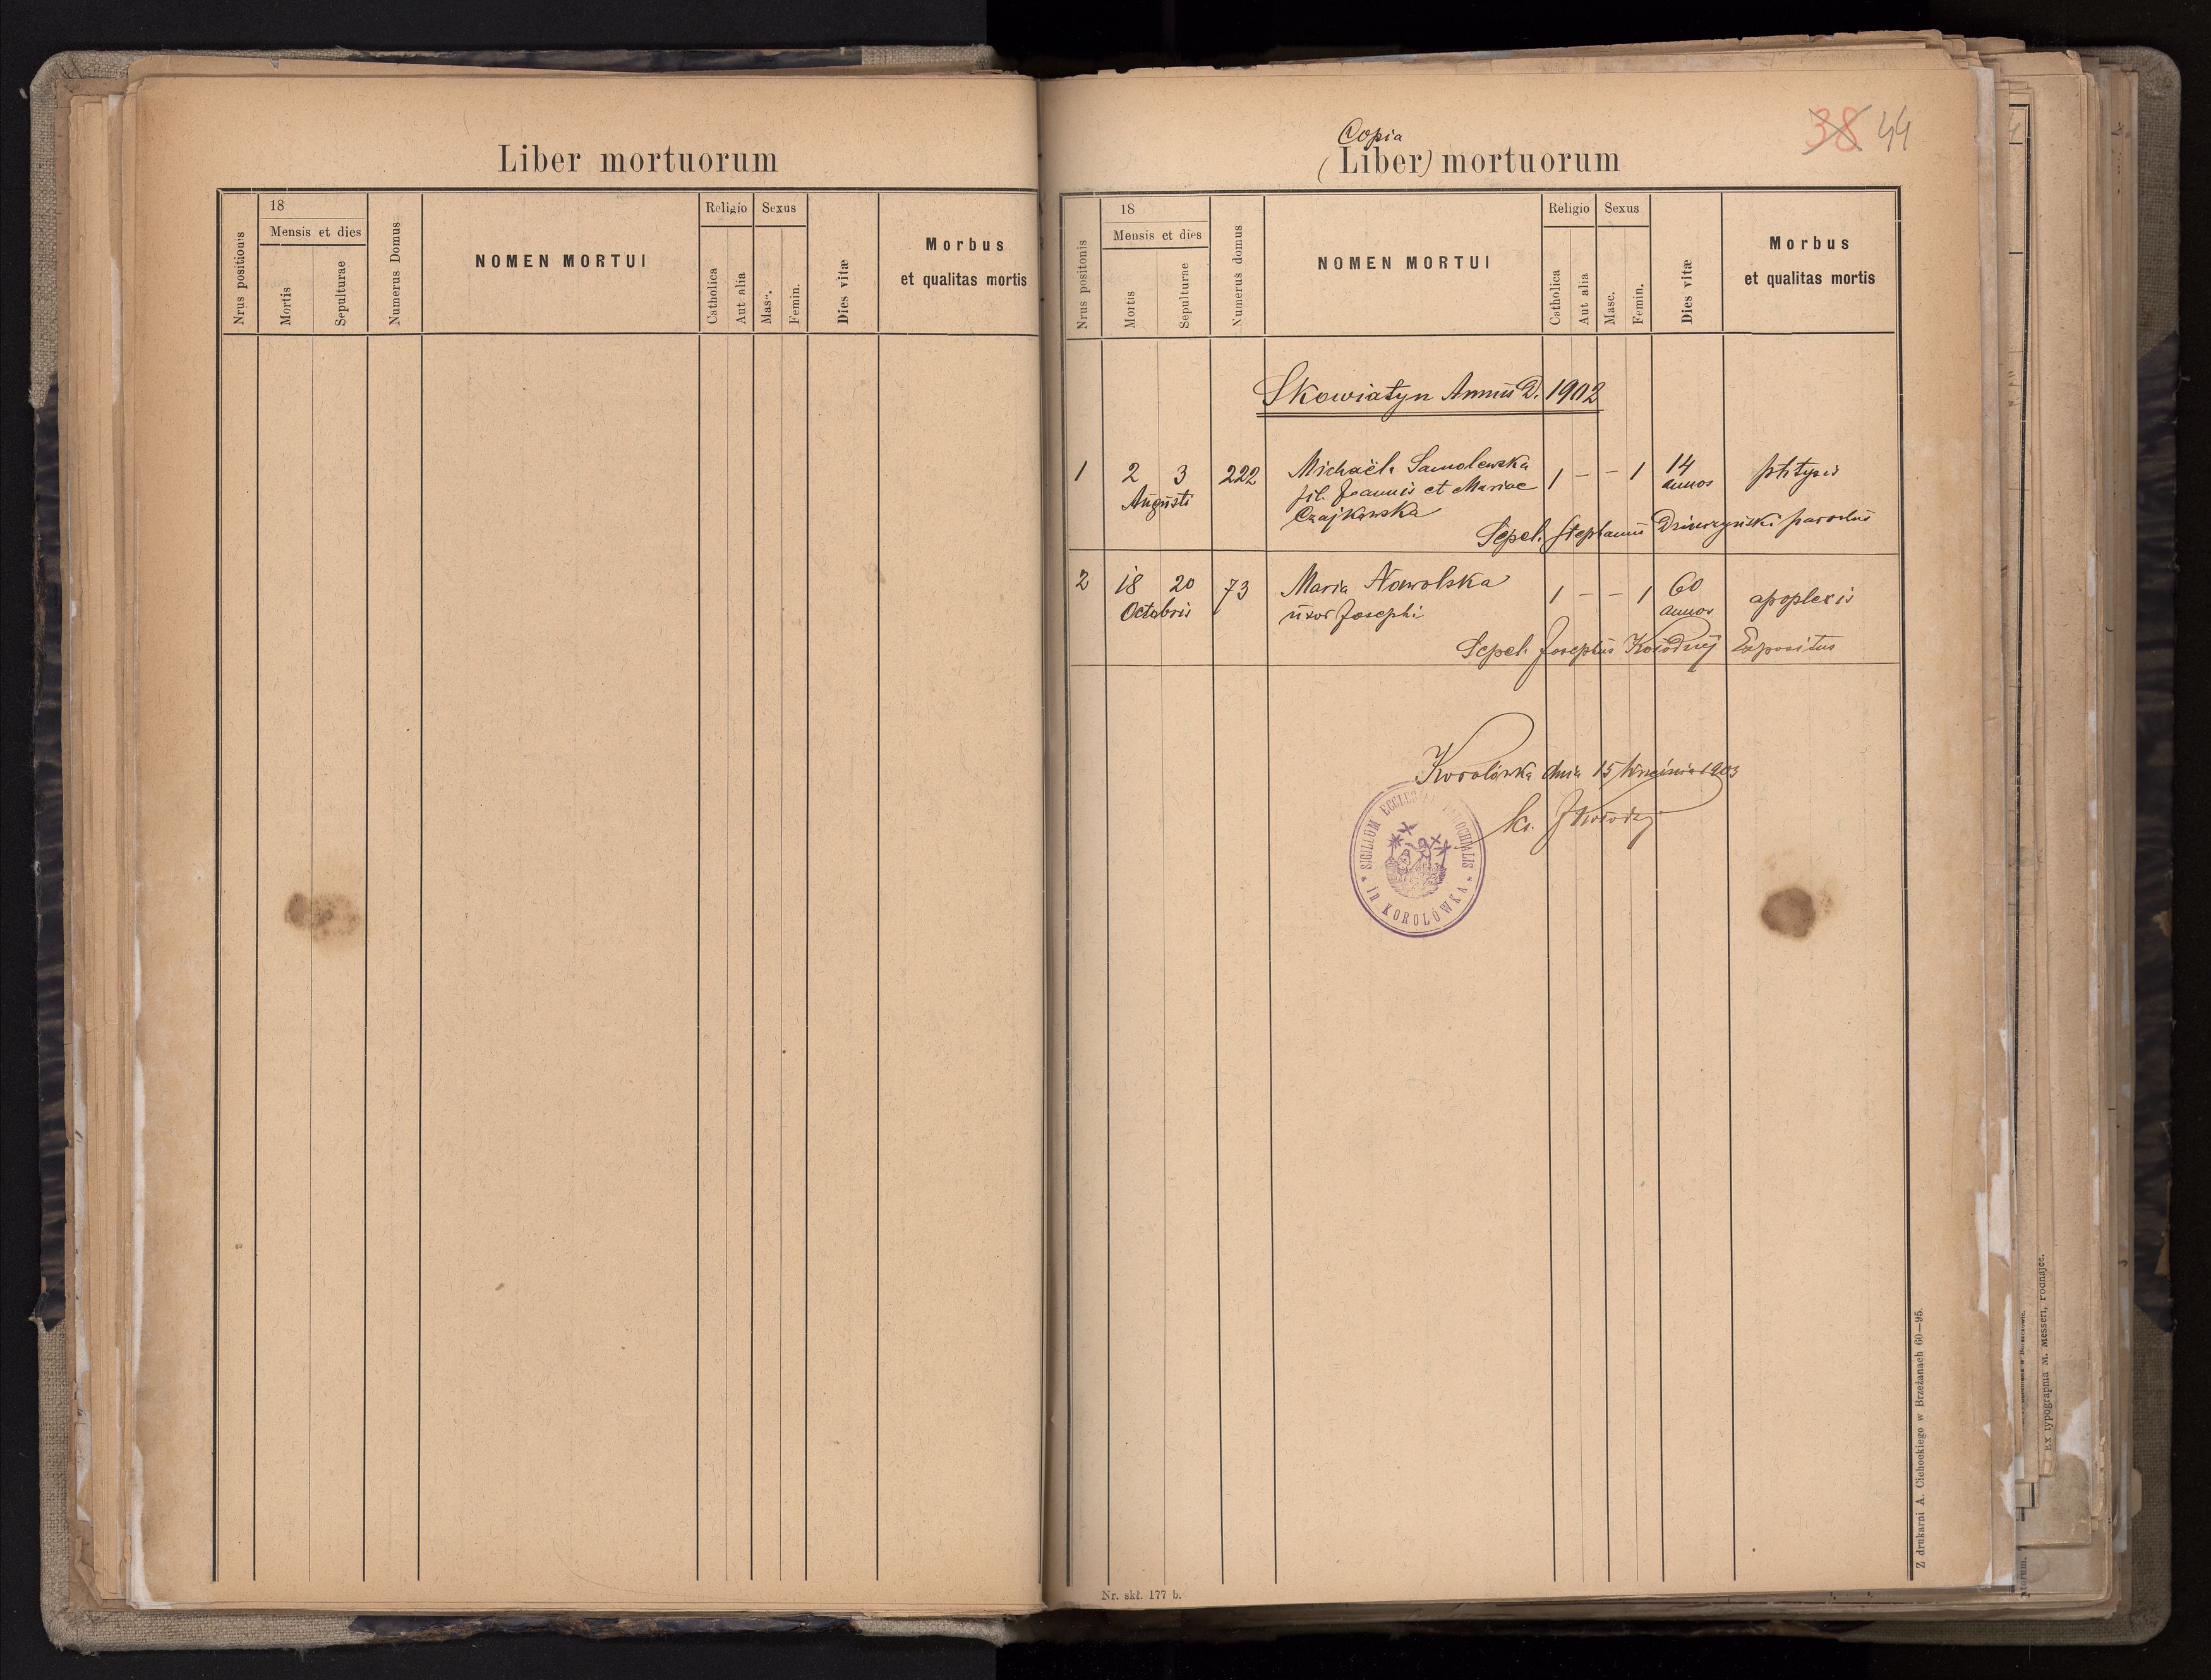 Liber mortuorum
Nrus positionis
18
Mensis et dies
Mortis
Sepulturae
Numerus Domus
NOMEN MORTUI
Religio
Catholica
Aut alia
Sexus
Masc.
Femin.
Dies vitæ
Morbus
et qualitas mortis
38 44
Copia
(Liber) mortuorum
Nrus positonis
18
Mensis et dies
Mortis
Sepulturae
Numerus domus
NOMEN MORTUI
Religio
Catholica
Aut alia
Sexus
Masc.
Femin.
Dies vitæ
Morbus
et qualitas mortis
Skowiatyn Annus D. 1902
1 2 3 222 Michaëla Samolewska 1 – – 1 14 phtysis
Augusti fil. Joannis et Mariae annos
Czajkowska
Sepel. Stephanus parochus
2 18 20 73 Maria Nowolska 1 – – 1 60 apoplexis
Octobris uxor Josephi annos
Sepel. Josephus Kołodzij Expositus
Korolówka dnia 15 Września 1903
ks. JKołodzij
SIGILLUM ECCLESIAE PAROCHIALIS
in KOROLÓWKA
Nr. skł. 177 b.
Z drukarni A. Cichockiego w Brzeżanach 60—95.
Ex typographia M. Messeri, Podhajce.